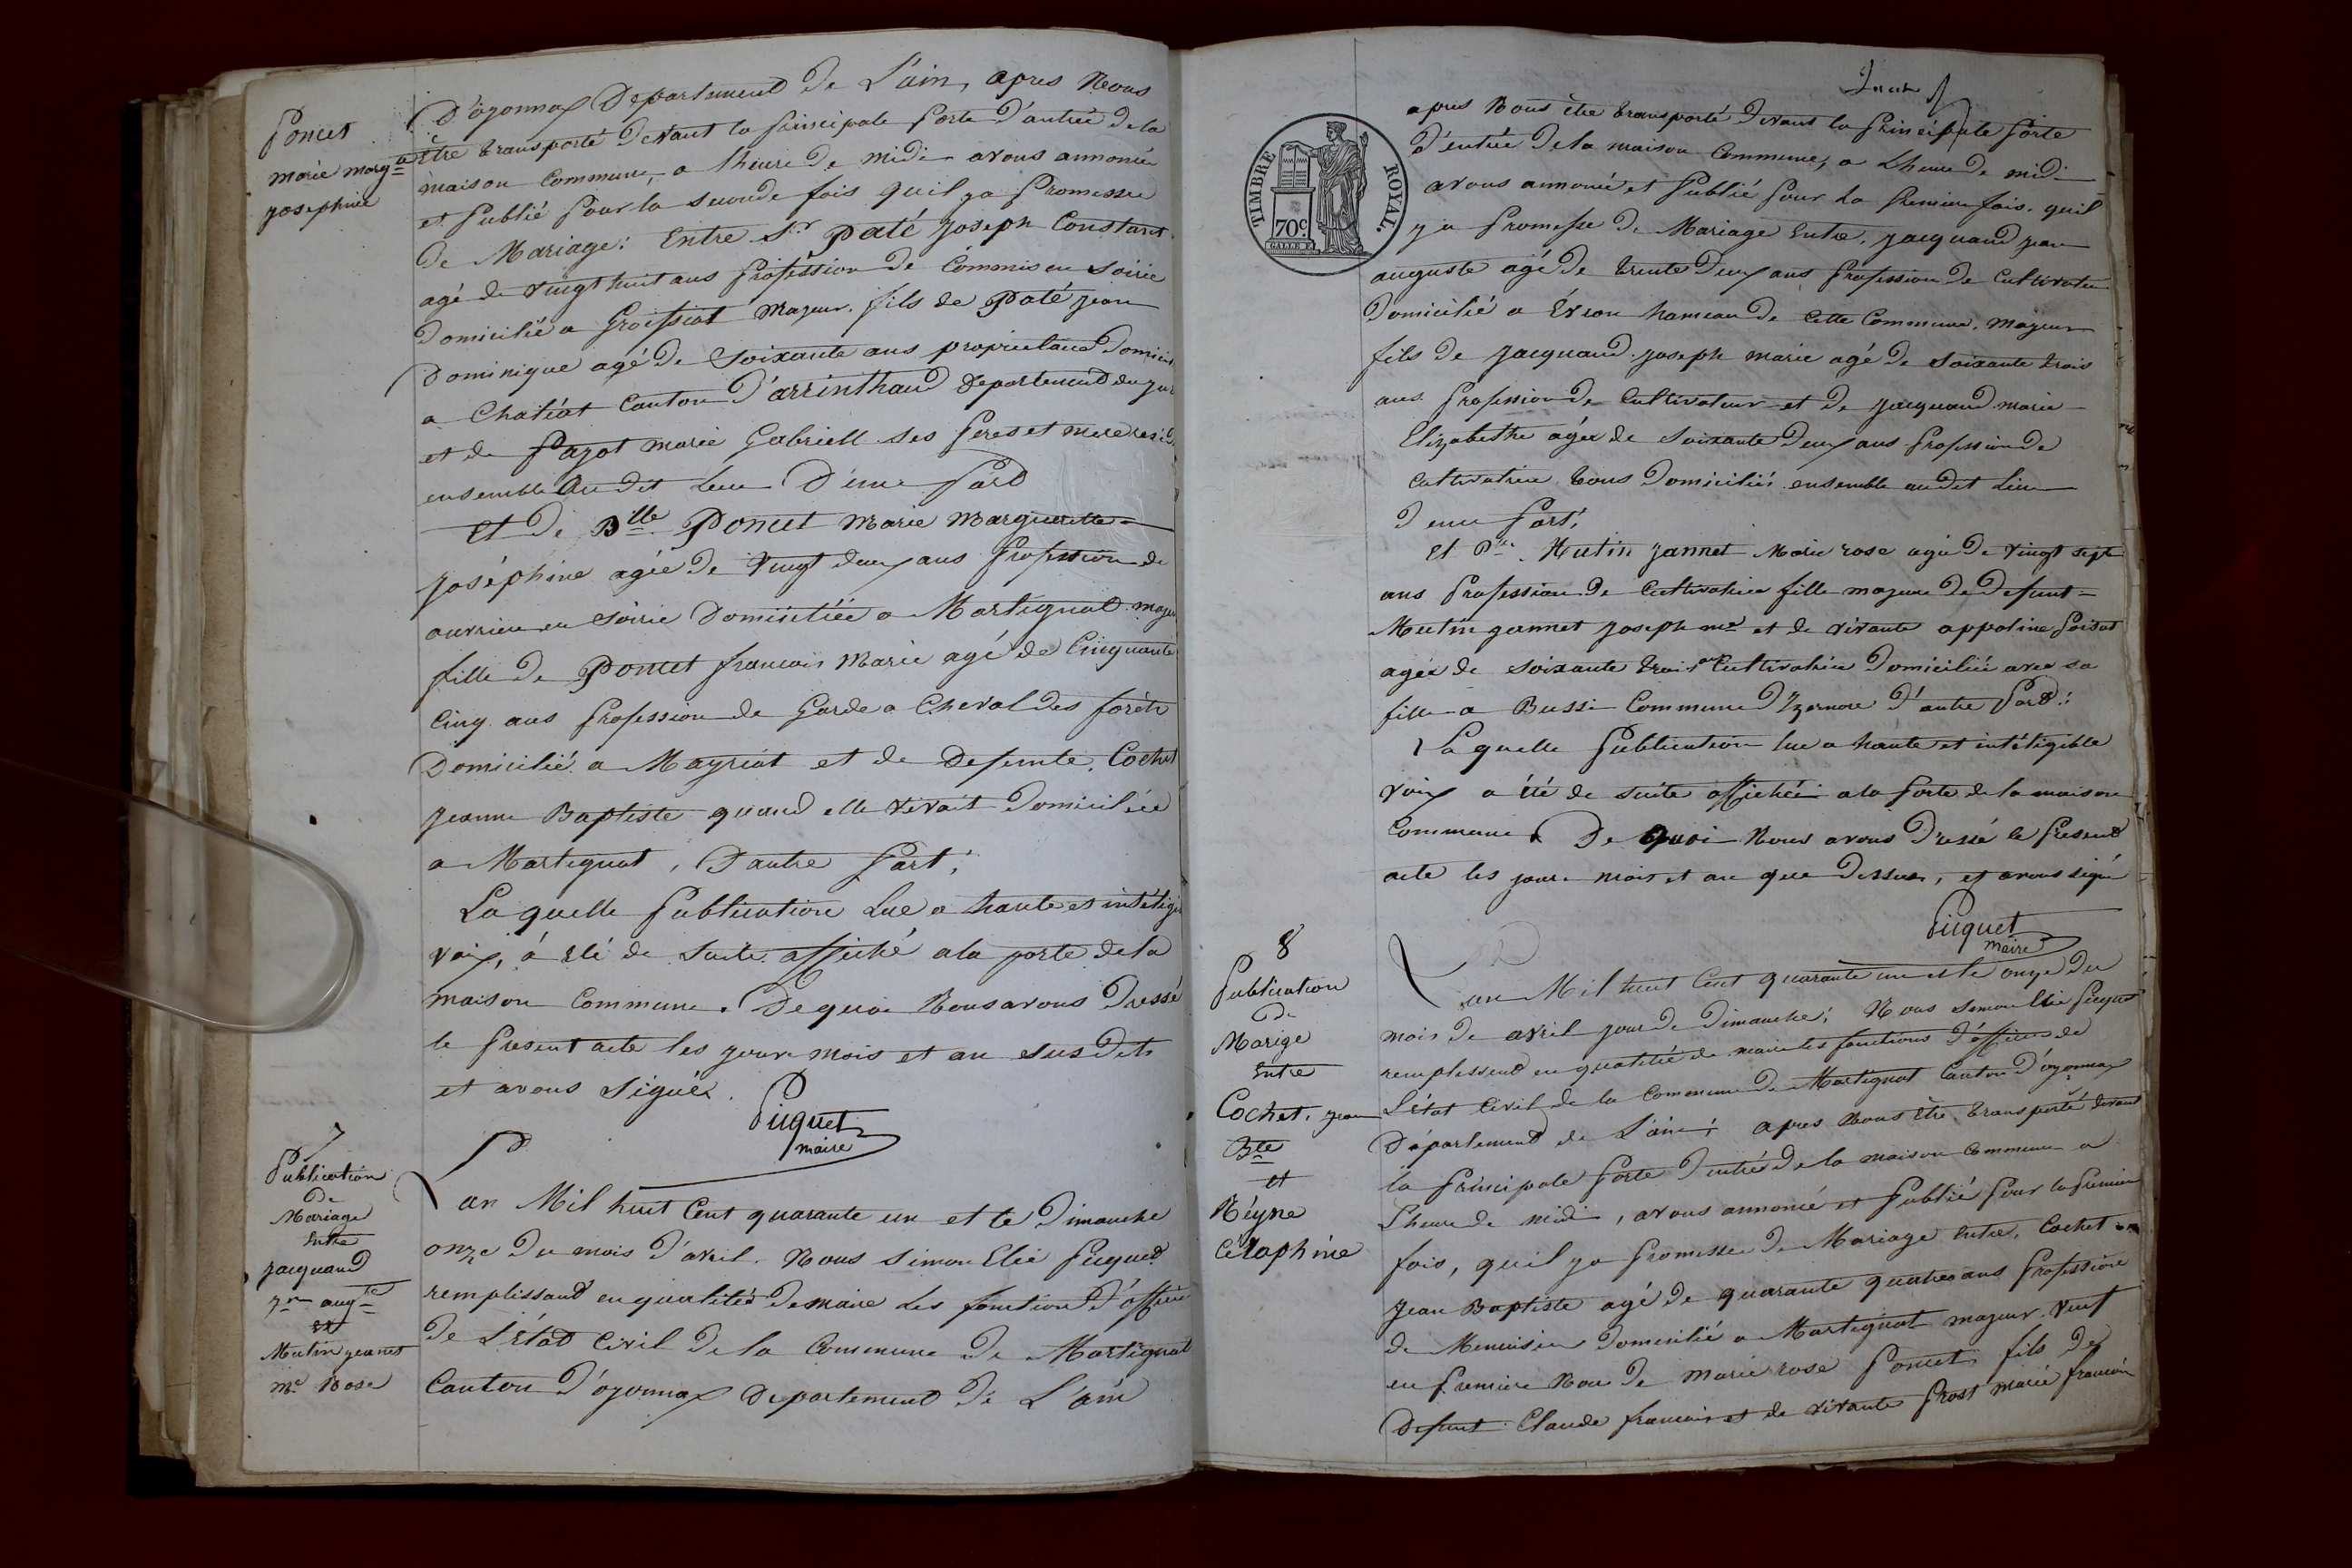 Poncet
marie marg^te
josephine
D'oyonnax Departement de L'ain, apres Nous
être transporté devant la principale porte d'entrée de la
maison Commune, a lheure de midi avous annoncé
et publié pour la seconde fois quil ya promesse
de Mariage: Entre S^r Paté joseph Constant
agé de vingt huit ans profession de Commis en soirie
Domicilié a Groissiat Majeur. fils de Paté jean
Dominique agé de soixante ans proprietaire Domicil
a Chatéat Canton d'arrinthaud departement du jur
et de Pajot marie Gabriell ses peres et mere resid
ensemble Au dit Leu D'une Part
Et de D^lle Poncet Marie Marguerette
joséphine agée de vingt deux ans profession de
ouvriere en soirie Domicilié a Martignat maje
fille de Poncet francois Marie agé de Cinquante
Cinq ans profession de Garde a Cheval des forêts
Domicilié a Mayriat et de Defunte. Cochet
jeanne Baptiste quand elle vivait Domiciliée
a Martignat, D'autre part;
La quelle publication Lue a haute et intéligi
voix, á été de suite affiché ala porte dela
maison Commune. De quoi Nous avous Dressé
le present acte les jour mois et an susdits
et avous signée.
Piquet
maire
7
Publication
De
Mariage
Entre
jacquand
j^n aug^te
et
Mutin jeannet
m^e Rose
Lan Mil huit Cent quarante un et le Dimanche
onze du mois d'avril. Nous simon Elie piquet
remplissant en qualitée de maire les fonction d'officie
de L'état Civil de la Commune de Martignat
Canton d'oyonnax departement de L'ain
TIMBRE ROYAL.
70^c.
apres Nous être transporté devant la principale porte
d'entrée dela maison Commune, a Lheure de midi
avous annoncé et publié pour la premiere fois. quil
y a promesse de Mariage Entre. jacquand jean
auguste agé de trente deux ans profession de Cultivateu
Domicilié a Évron hameau de Cette Commune. Majeur
fils de jacquand. joseph marie agé de soixante trois
ans profession de Cultivateur et de jacquand marie
Elizabethe agée de soixante deux ans profession de
Cultivatrice tous Domiciliés ensemble audit Lieu
d'une part;
Et D^lle. Mutin jannet Marie rose agée de vingt sept
ans profession de Cultivatrice fille majeure de Defunt
Mutin jannet joseph m^e et de vivante appoline
agée de soixante trois ans Cultivatrice Domiciliée avec sa
fille a Bussi Commune D'Izernore d'autre part:
La quelle publication lue a haute et intéligible
voix a été de suite affichée ala porte de la maison
Commune. De Quoi Nous avous Dressé le present
acte les jour mois et an que Dessus, et avous signé
Piquet
maire
8
Publication
De
Marige
Entre
Cochet. jean
B^te
et
Réyne
Céraphine
Lan Mil huit Cent quarante un et le onze du
mois de avril jour de Dimanche; Nous simon Elie piquet
remplissend en qualitié de maire les fonctions d'officier de
L'état Civil de la Commune De Martignat Canton d'oyonnax
Département de L'ain; apres Nous être transporté devant
la principale porte d'entrée de la maison Commune a
L'heure de midi, avous annoncé et publié pour la premiere
fois, quil ya promesse de Mariage Entre, Cochet
jean Baptiste agé de quarante quatre ans profession
de Menuisier Domicilié a Martignat majeur. veuf
en premiere Noce de marie rose Poncet fils de
Defunt Claude francois et de vivante Prost marie francoi